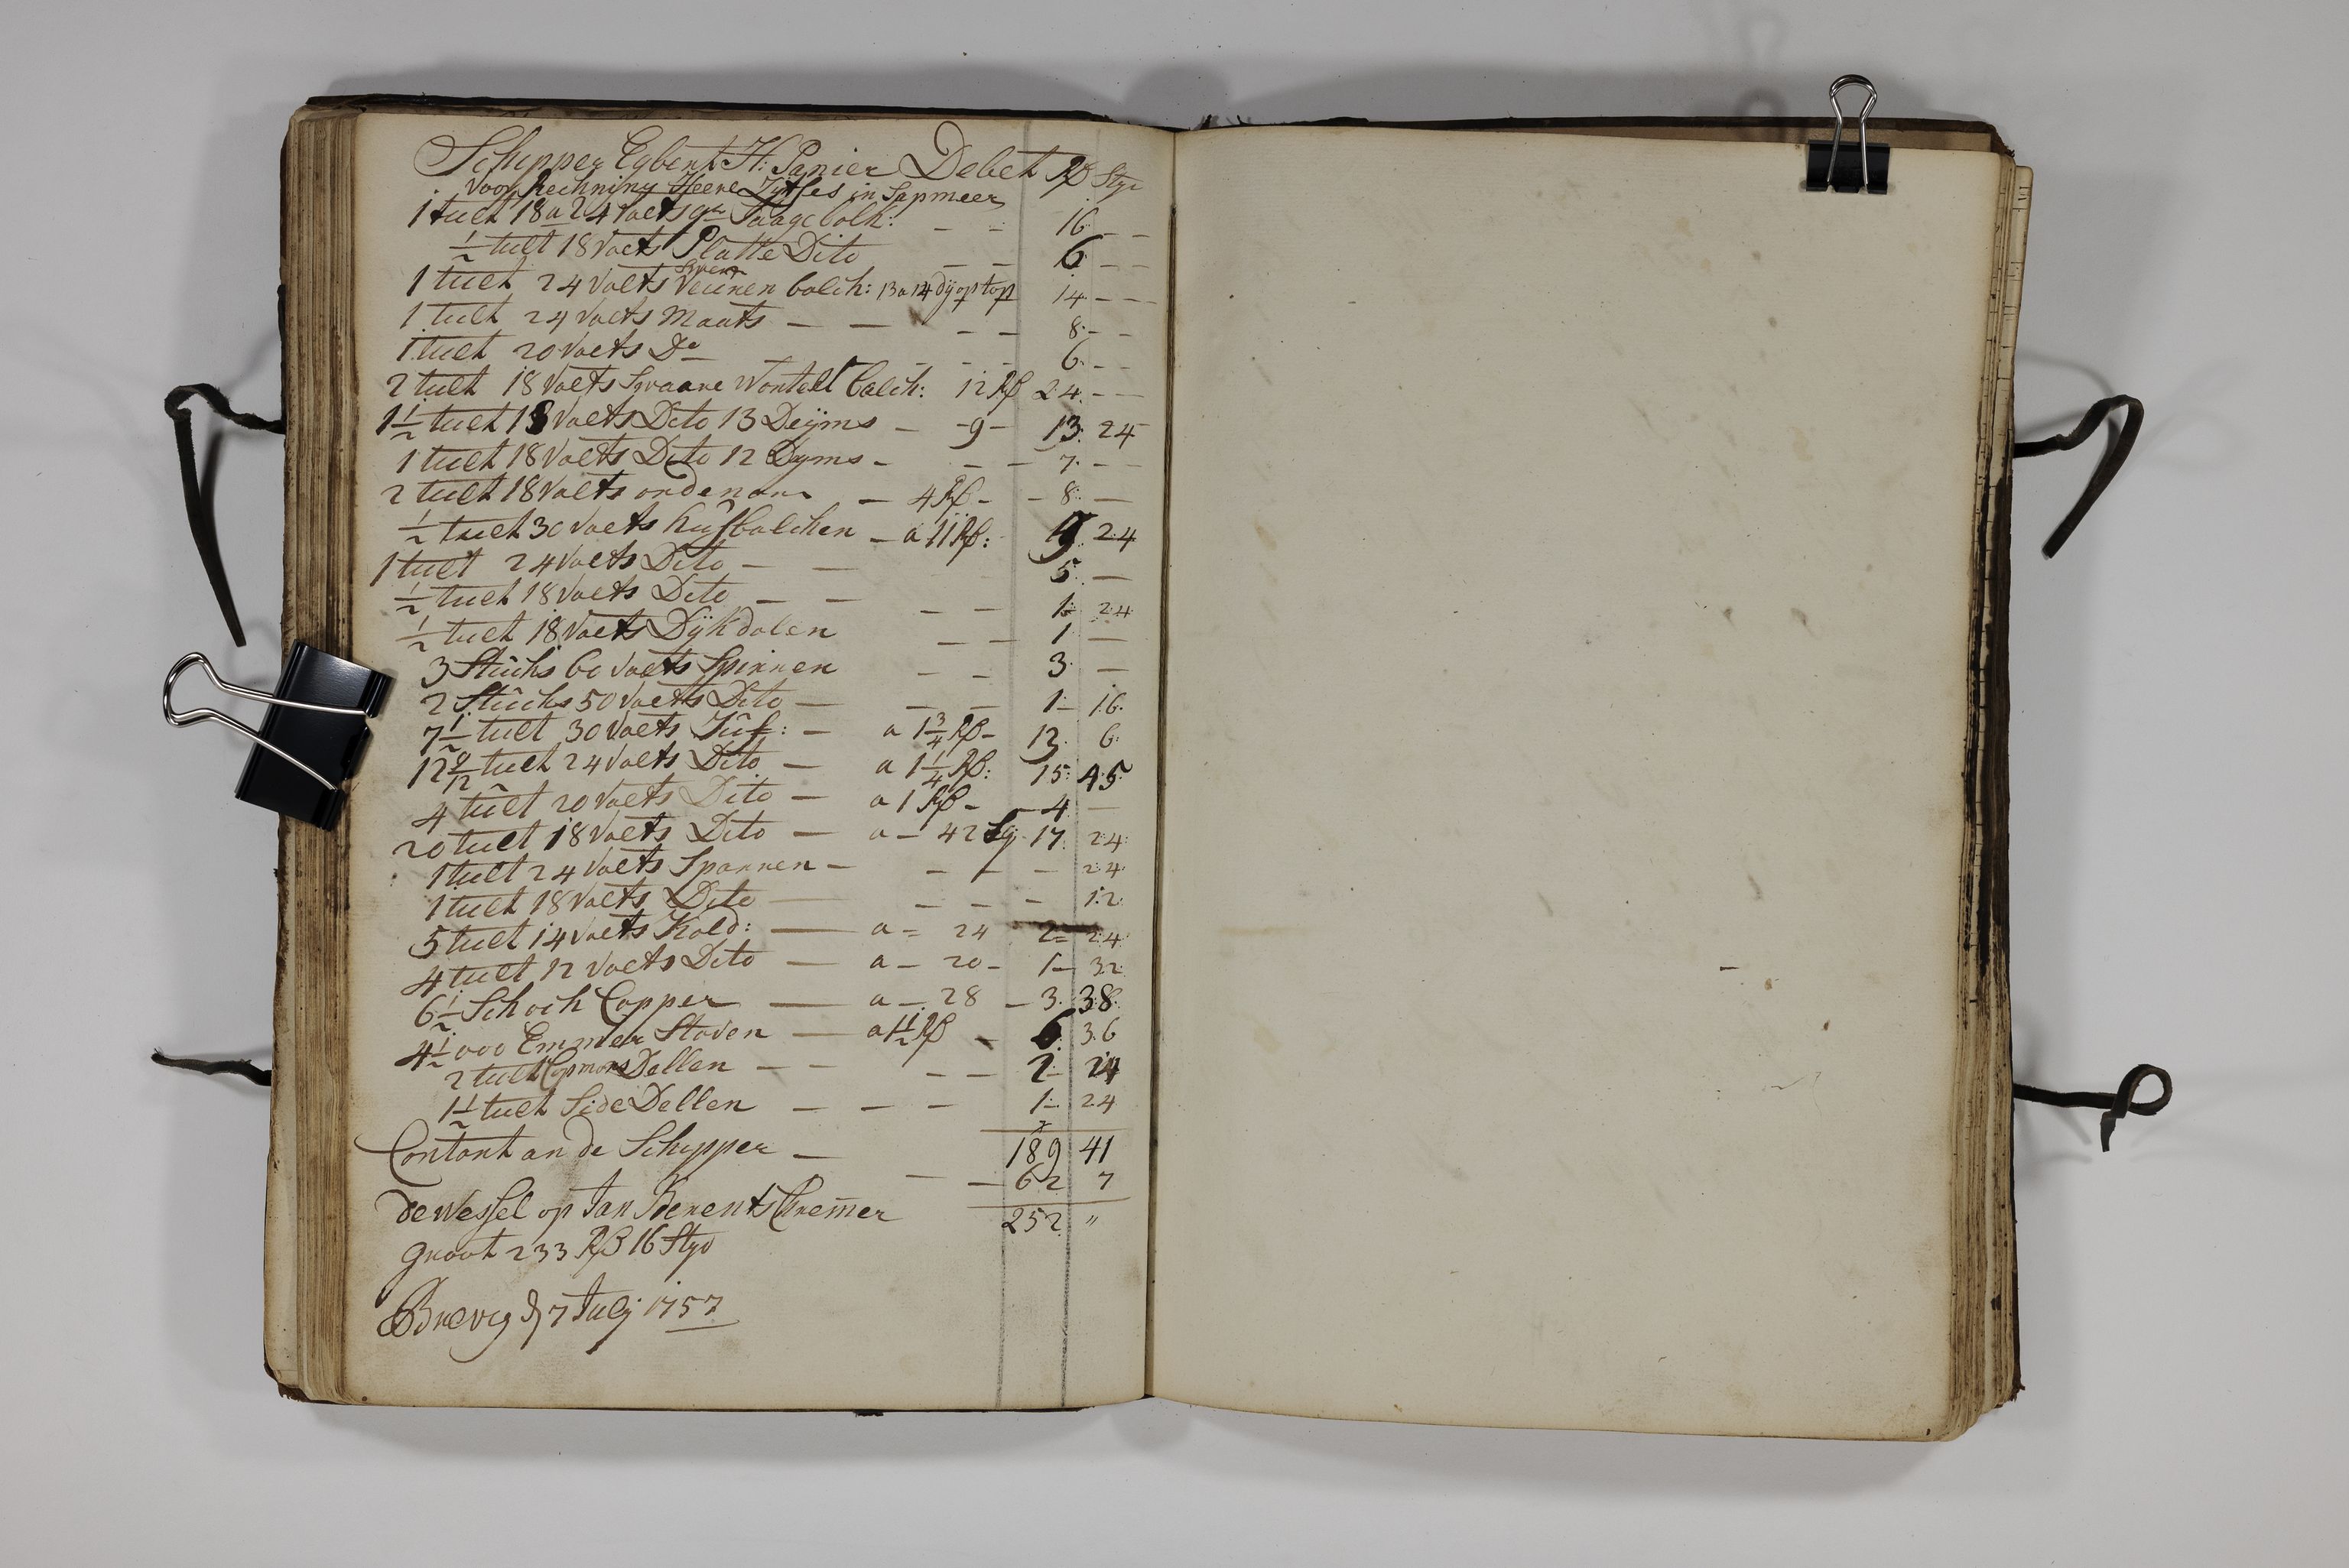 Schipper Egbert H: Panier Debet Rß Styv
Voor Rechning Heere Zytses in Sapmeer
1 tult 18 a 24 Voets gr Saagebolk: – – 16 – –
1/2 tult 18 Voets Platte Dito – – 6 – –
1 tult 24 Voets Svear Veuren balch: 13 a 14 dÿ op top 14 – –
1 tult 24 Voets Maats – – – – 8 – –
1 tult 20 Voets Do – – – – 6 – –
2 tult 18 Voets Svaare Wontelt balch: 12 Rß 24 – –
1 1/2 tult 18 Voets Dito 13 Deÿms – – 9 – 13 24
1 tult 18 Voets Dito 12 Dyms – – – 7 – –
2 tult 18 Voets ordenare – 4 Rß – – 8 –
1/2 tult 30 Voets Kufbalchen – a 11 Rß: 24
1 tult 24 Voets Dito – – 5 –
1/2 tult 18 Voets Dito – – – – 1 24
1/2 tult 18 Voets Dÿkdalen – – 1 –
3 Stüchs 60 Voets Spirren – – 3 –
2 Stüchs 50 Voets Dito – – – 1 16
7 1/2 tult 30 Voets Jüf: – a 1 3/4 Rß – 13 6
12 9/12 tult 24 Voets Dito – a 1 1/4 Rß: 15 45
4 tült 20 Voets Dito – a 1 Rß – 4 –
20 tult 18 Voets Dito – a – 42 Sg 17 24
1 tult 24 Voets Sparren – – – – 24
1 tult 18 Voets Dito – – – – 12
5 tult 14 Voets Kold: – a = 24 2 = 24
4 tult 12 Voets Dito – a – 20 – 1 – 32
6 1/2 Schoch Copper – a – 28 – 3 38
4 1/2 000 Emmer Staven – a 1 1/2 Rß – 6 36
2 tult Copmans Dellen – – – – 2 24
1 1/2 tult Side Dellen – – – 1 24
189 41
Contant an de Schipper – – – 62 7
252 "
de Wessel op Jan Berents Cremer
groot 233 Rß 16 Styv
Brevig d 7 Julj 1757